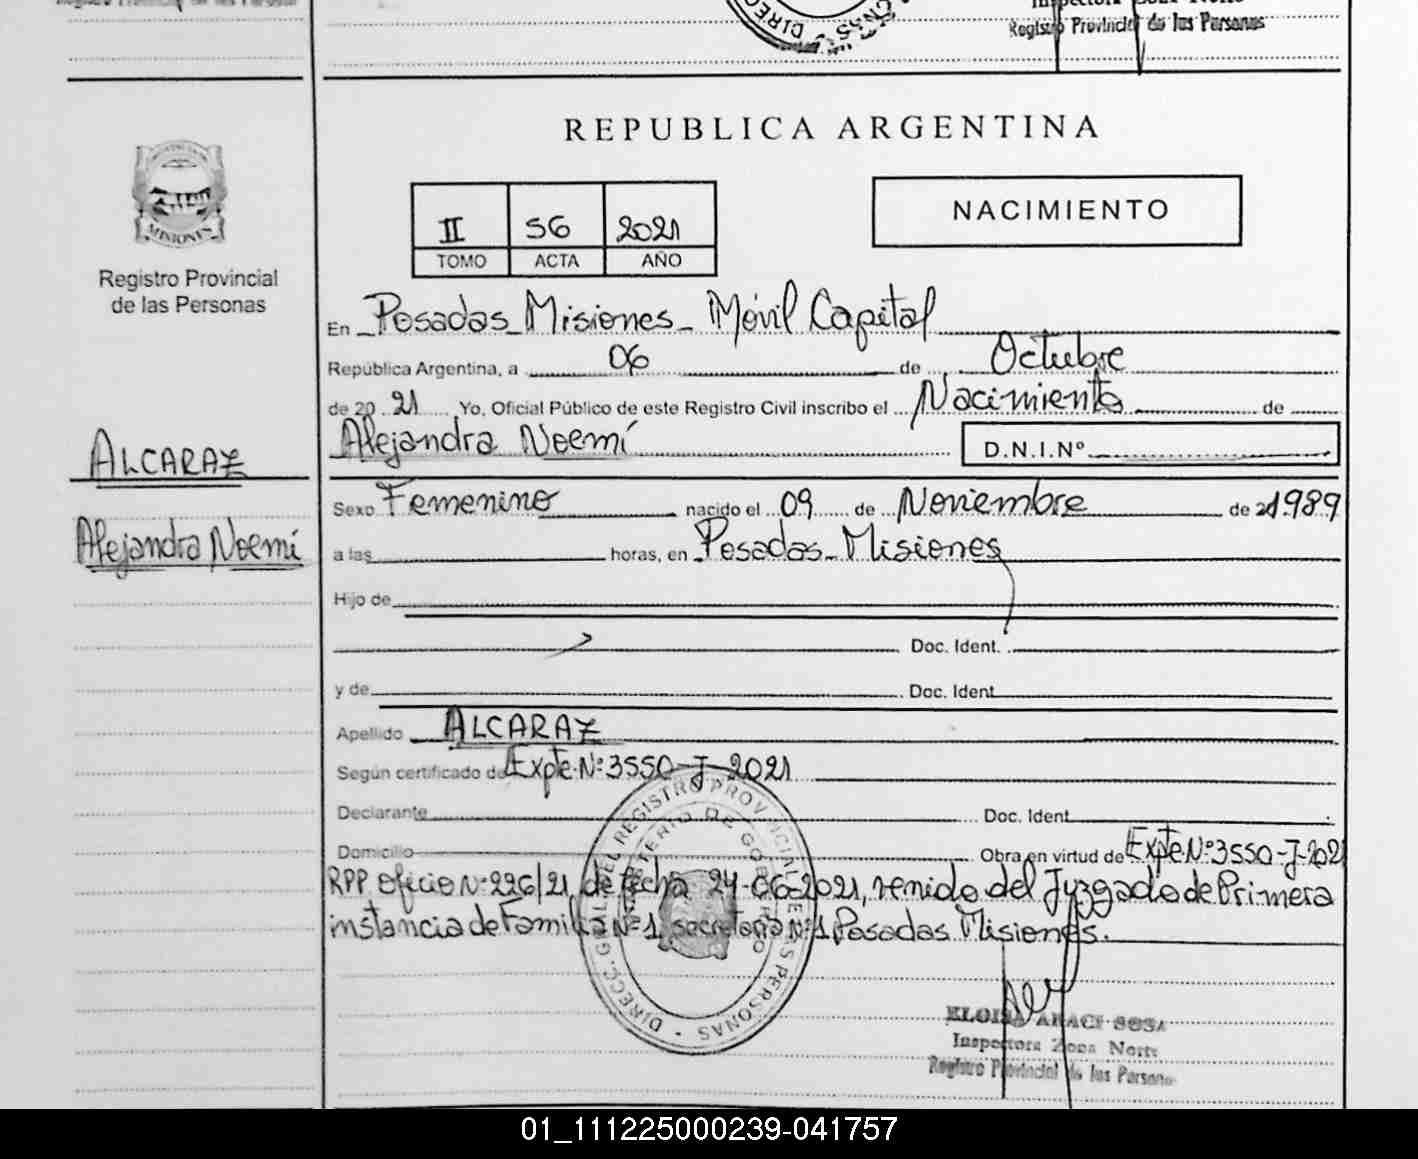 Registro Provincial de las Personas
REPUBLICA ARGENTINA
NACIMIENTO
II 56 2021
TOMO ACTA AÑO
MISIONES
Registro Provincial
de las Personas
En Posadas Misiones Móvil Capital
República Argentina, a 06 de Octubre
de 20 21 Yo, Oficial Público de este Registro Civil inscribo el Nacimiento de
Alejandra Noemí D.N.I.Nº
ALCARAZ
Alejandra Noemí
Sexo Femenino nacido el 09 de Noviembre de 1989
a las horas, en Posadas Misiones
Hijo de
Doc. Ident.
y de Doc. Ident
Apellido ALCARAZ
Según certificado de Expte Nº 3550-J-2021
Declarante Doc. Ident
Domicilio Obra en virtud de Expte Nº 3550-J-2021
RPP oficio Nº 226/21 de fecha 24-06-2021, venido del Juzgado de Primera
instancia de Familia Nº 1, secretaria Nº 1 Posadas Misiones.
DIRECC. GRAL. DEL REGISTRO PROVINCIAL DE LAS PERSONAS
MINISTERIO DE GOBIERNO
ELOISA ARACI SOSA
Inspectora Zona Norte
Registro Provincial de las Personas
01_111225000239-041757